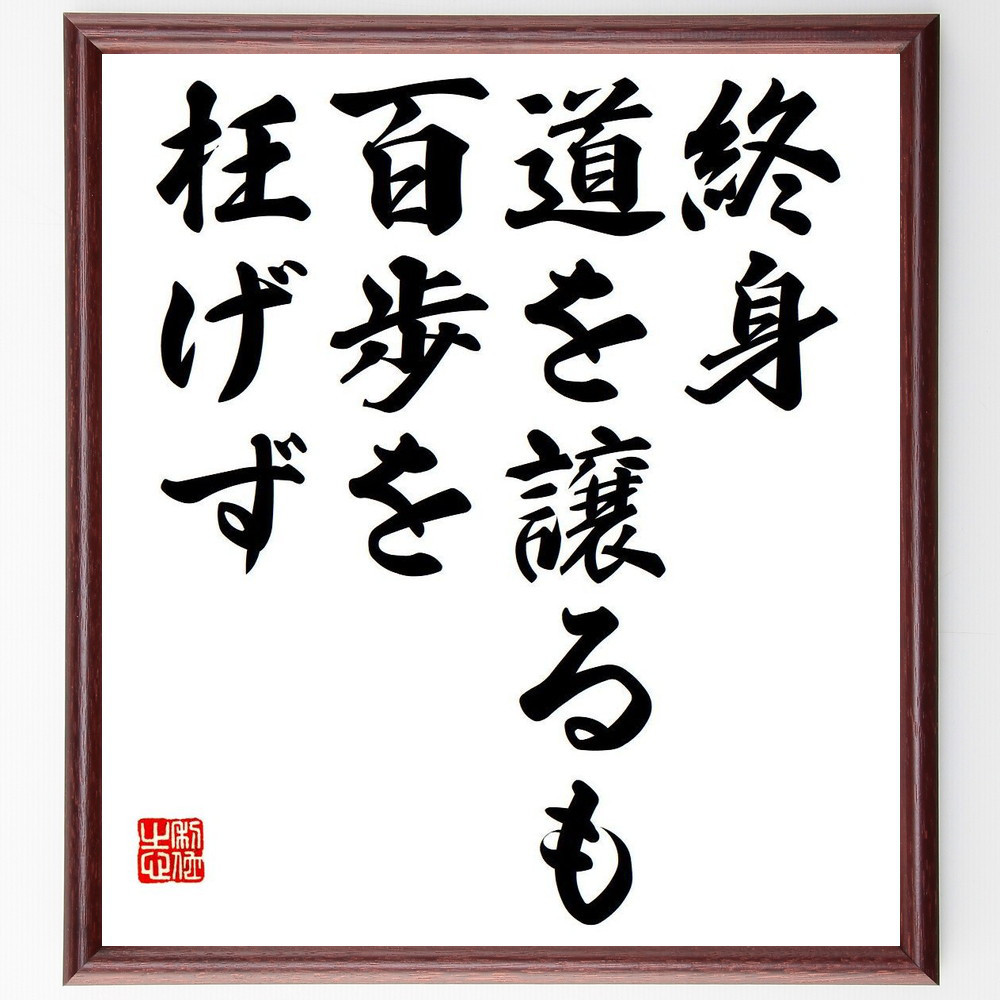 終身
道を譲るも
百歩を
枉げず